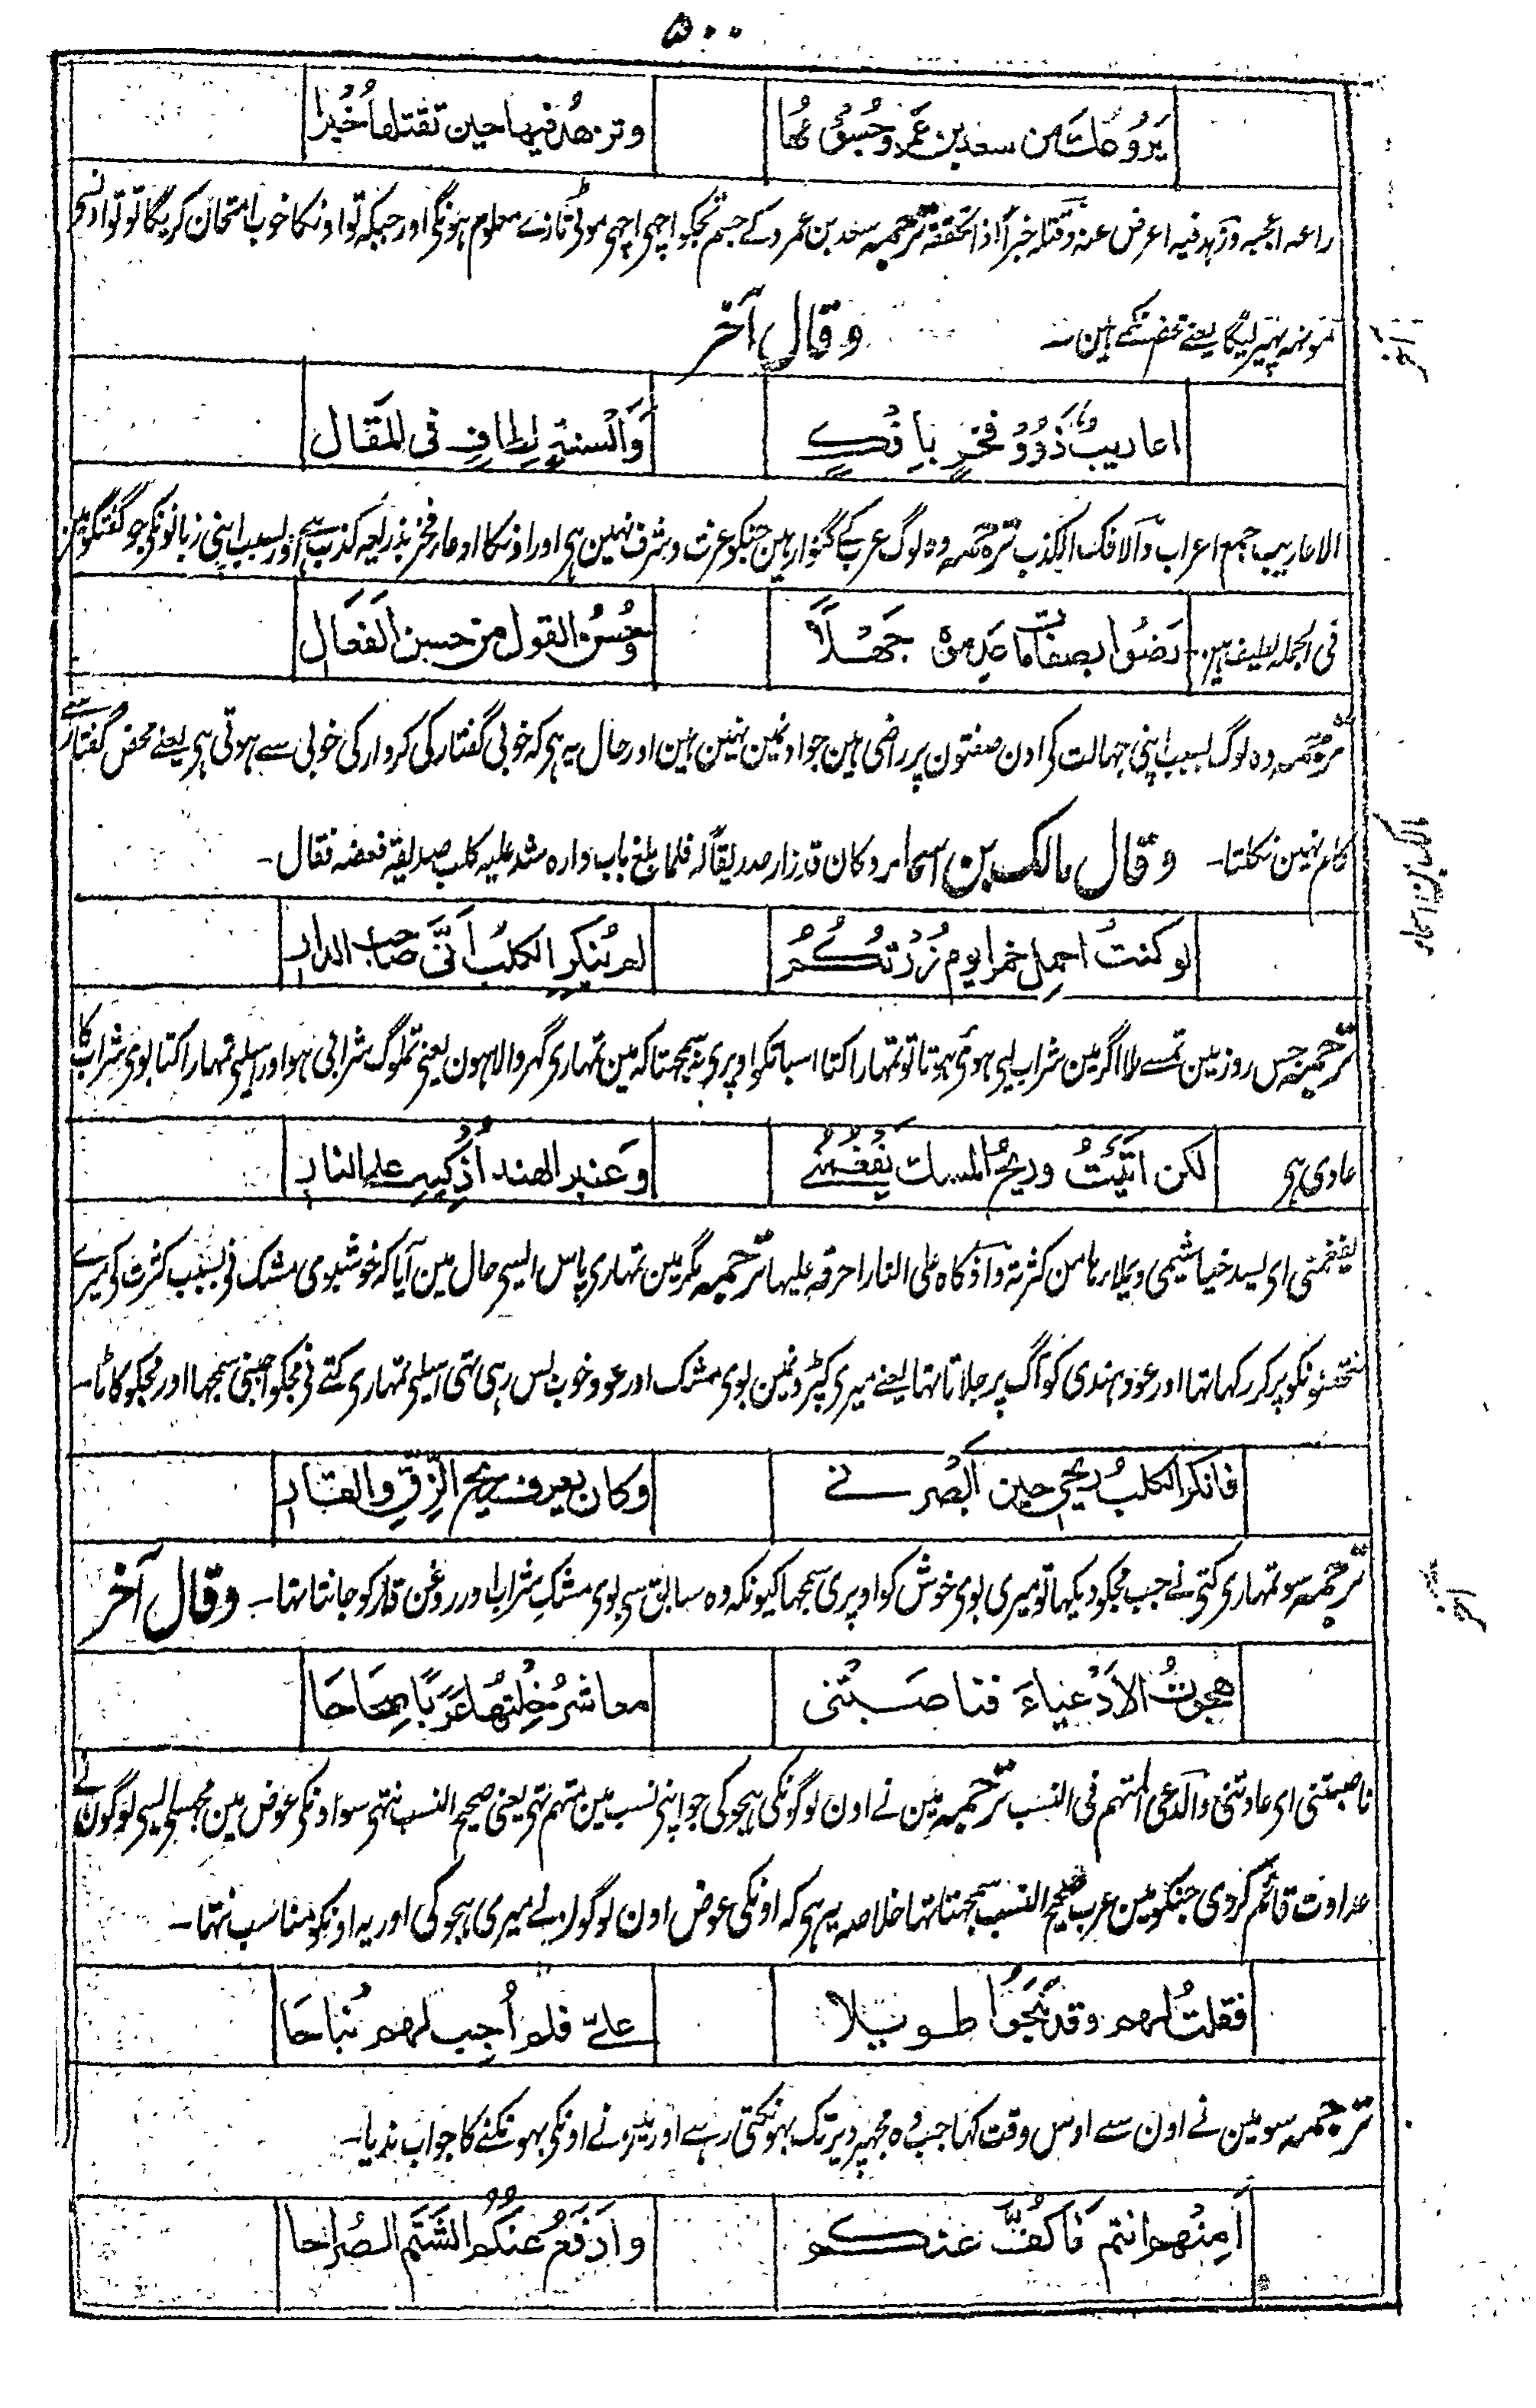 ۵۰۰
يَرُوعُكَ من سعد بن عَمرو جُسُومُها وتزهدُ فيها حين تقتلها خُبْرا
راعہ اعجبہ وزہد فیہ اعرض عنہ وقتلہ خبراً اذا تحققہ ترجمہ سعد بن عمرو کے جسم تجکو اچھی اچھی موٹی تازے معلوم ہونگی اور جبکہ تو اونکا خوب امتحان کریگا تو تو اونسی
مونہہ پہیر لیگا یعنے محض نکمے ہین۔ وقال آخر
اعاريبٌ ذَوُوْ فخرٍ بِاِفكٍ وَاَلْسنةٍ لِطافٍ فى المَقَال
الاعاریب جمع اعراب والافک الکذب ترجمہ وہ لوگ عرب کے گنوار ہین جنکو عزت و شرف نہین ہی اور اونکا ادعاء فخر بذریعہ کذب ہے اور بسبب اپنی زبانونکی جو گفتگو مین
فی الجملہ لطیف ہین۔ رَضُوا بصفاتِ ما عَدِموهُ جَهْلاً وحُسنُ القول من حسن الفَعَال
ترجمہ وہ لوگ بسبب اپنی جہالت کی اون صفتون پر راضی ہین جو اونمین نہین ہین اور حال یہ ہی کہ خوبی گفتار کی کردار کی خوبی سے ہوتی ہی یعنے محض گفتار سے
کام نہین نکلتا۔ وقال مالک بن اسماء وکان قد زار صدیقاً لہ فلما بلغ باب دارہ شد علیہ کلب صدیقہ فعضہ فقال۔
لو كنتُ احمِل خمرا يوم زُرْتُكُمُ لم يُنكِرِ الكلبُ اَنّى صاحب الدار
ترجمہ جس روز مین تمسے ملا اگر مین شراب لیی ہوئی ہوتا تو تمہارا کتا اسباتکو اوپری نہ سمجہتا کہ مین تمہاری گہر والا ہون یعنی تملوگ شرابی ہو اور اسلیی تمہارا کتا بوی شراب کا
عادی ہی لكن اتيتُ وريحُ المسك يَفْغَمُنى وعنبر الهند اُذْكِيهِ على النار
یفغمنی ای یسد خیاشیمی ویملأ ہا من کثرتہ واذکاہ علی النار احرقہ علیہا ترجمہ مگر مین تمہاری پاس ایسی حال مین آیا کہ خوشبوی مشک نی بسبب کثرت کی میرے
نتھنونکو پر کر رکہا تہا اور عود ہندی کو آگ پر جلاتا تہا یعنے میری کپڑونمین بوی مشک اور عود خوب بس رہی تہی اسلیی تمہاری کتے نی مجکو اجنبی سمجہا اور مجکو کاٹا۔
فانكر الكلبُ ريحى حين اَبْصرنى وكان يعرف ريح الزِّقِّ والقار
ترجمہ سو تمہاری کتی نے جب مجکو دیکہا تو میری بوی خوش کو اوپری سمجہا کیونکہ وہ سابق سی بوی مشک شراب اور روغن قار کو جانتا تہا۔ وقال آخر
هجوتُ الاَدْعياءَ فناصَبَتْنى معاشرُ خِلْتُها عَرَبًا صِحَاحَا
ناصبتنی ای عادتنی والدعی المتہم فی النسب ترجمہ مین نے اون لوگونکی ہجو کی جو اپنی نسب مین متہم تہی یعنی صحیح النسب نتہی سو اونکی عوض مین مجسی ایسی لوگون نے
عداوت قائم کر دی جنکو مین عرب صحیح النسب سمجہتا تہا خلاصہ یہ ہی کہ اونکی عوض اون لوگون نے میری ہجو کی اور یہ اونکو مناسب نتہا۔
فقلتُ لهم وقد نَبَحُوا طويلا علىّ فلم اُجِب لهم نُبَاحَا
ترجمہ سو مین نے اون سے اوس وقت کہا جب وہ مجہپر دیر تک بہونکتی رہے اور مین نے اونکی بہونکنے کا جواب ندیا۔
اَمِنْهم انتم فَاَكُفَّ عنكم واَدْفَعُ عنكمُ الشَّتمَ الصُراحا